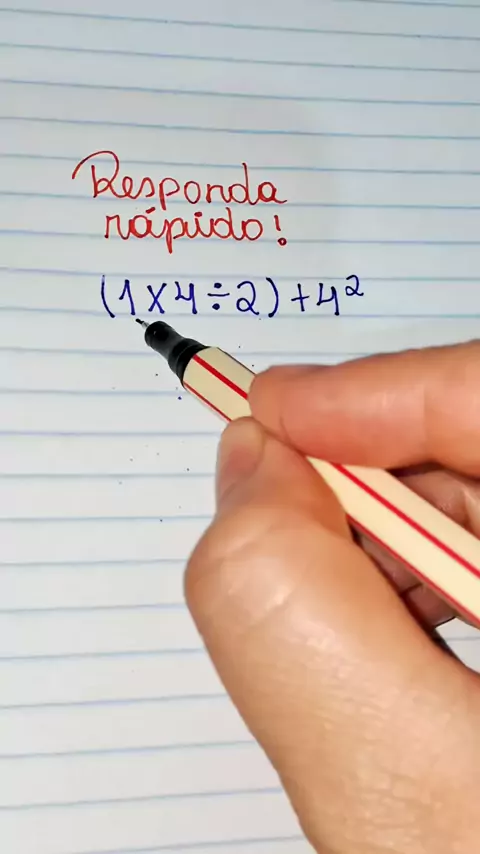 Responda
rápido!
(1 x 4 ÷ 2) + 4²